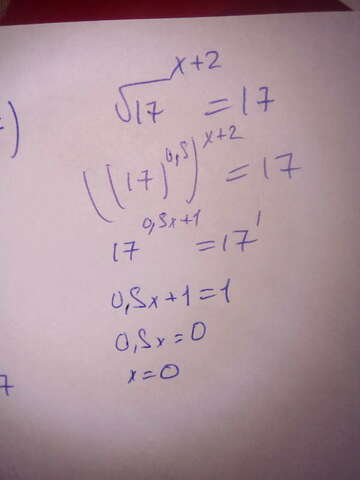 √17^(x+2) = 17
((17)^0,5)^(x+2) = 17
17^(0,5x+1) = 17^1
0,5x+1=1
0,5x=0
x=0
)
7